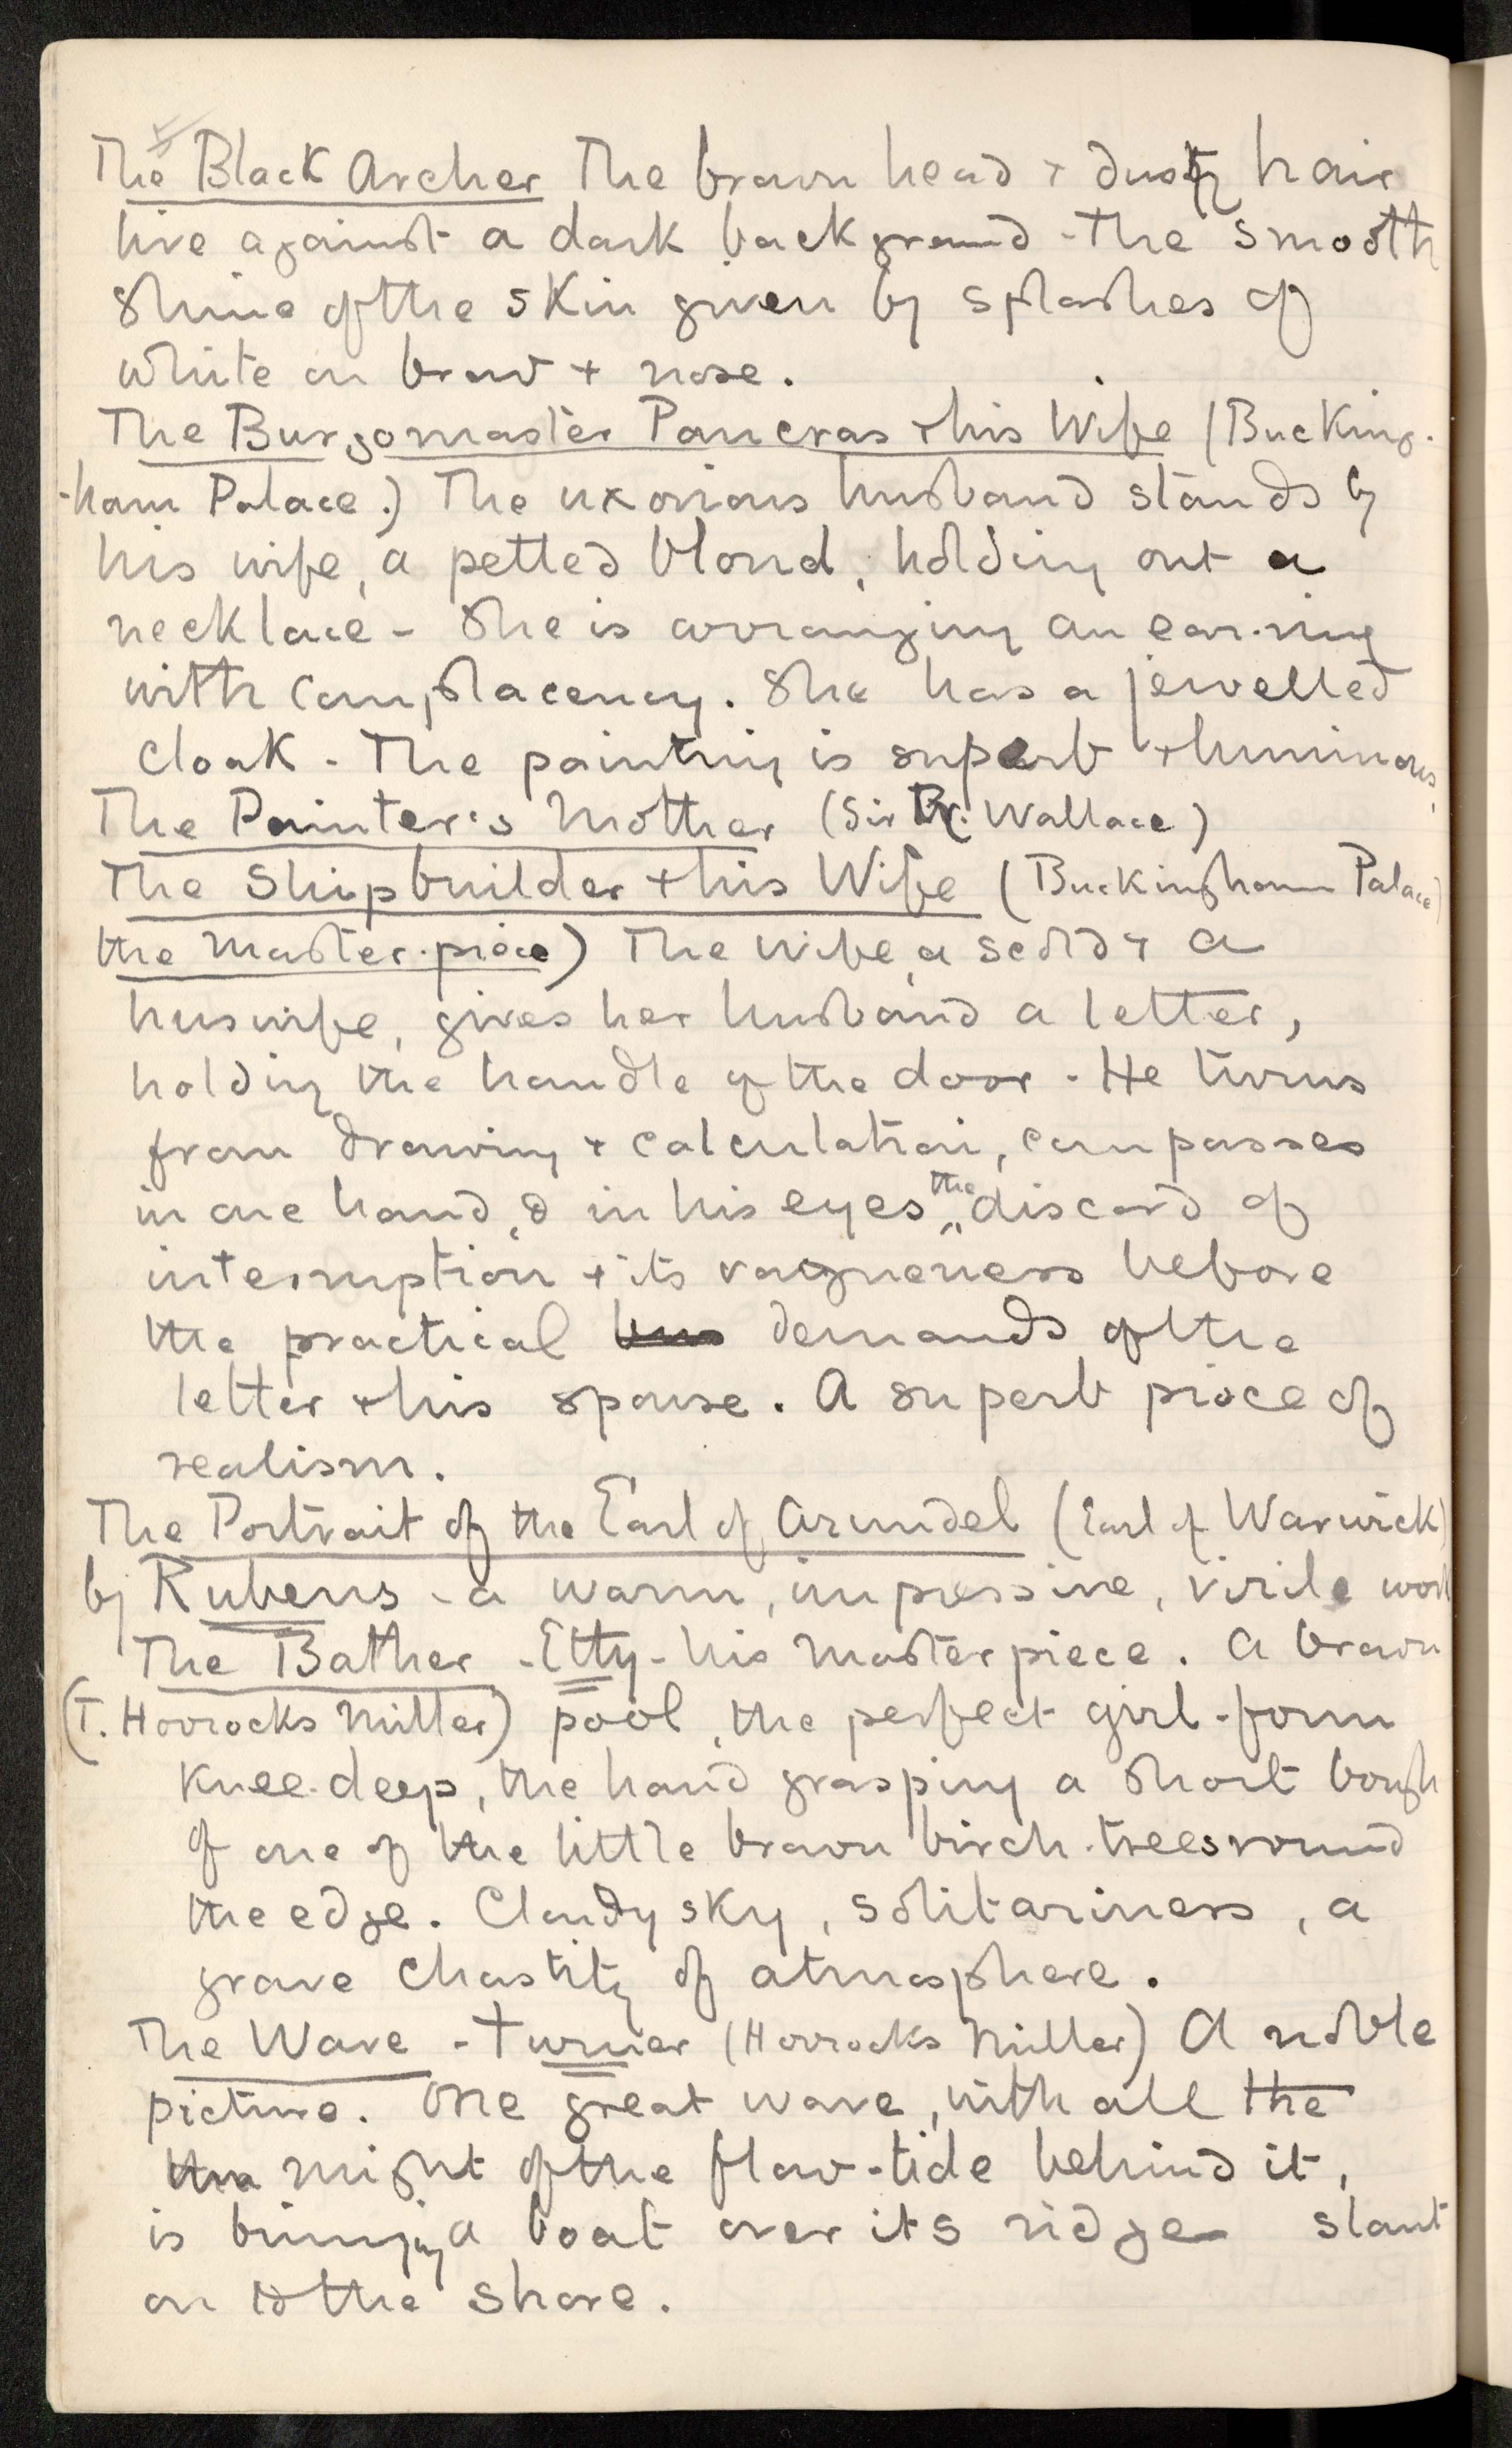 The Black Archer The brown head + dusty hair
live against a dark background - the smooth
shine of the skin given by splashes of
white on brow + nose.
The Burgomaster Pancras + his Wife (Bucking-
-ham Palace.) The uxorious husband stands by
his wife, a petted blond, holding out a
necklace - She is arranging an ear-ring
with complacency. She has a jewelled
cloak - The painting is superb + luminous.
The Painter's Mother (Sir R. Wallace)
The Shipbuilder + his Wife (Buckingham Palace)
the master-piece) The wife, a scold + a
huswife, gives her husband a letter,
holding the handle of the door - He turns
from drawing + calculation, compasses
in one hand, & in his eyes the discord of
interruption + its vagueness before
the practical demands of the
letter + his spouse. A superb piece of
realism.
The Portrait of the Earl of Arundel (Earl of Warwick)
by Rubens - a warm, impressive, virile work
The Bather - Etty - his masterpiece. A brown
(T. Horrocks Miller) pool, the perfect girl-form
knee-deep, the hand grasping a short bough
of one of the little brown birch-trees round
the edge. Cloudy sky, solitariness, a
grave chastity of atmosphere.
The Wave - Turner (Horrocks Miller) A noble
picture. One great wave, with all the
the might of the flow-tide behind it,
is bringing a boat over its ridge slant
on to the shore.